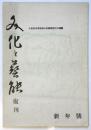 文化と藝能
復刊
新年號